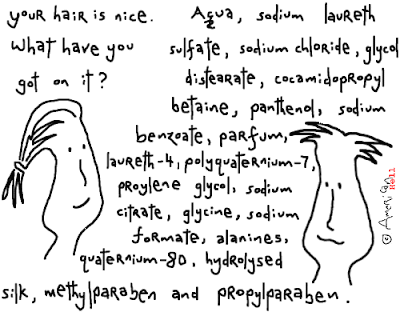 your hair is nice.
What have you
got on it?
Aqua, sodium laureth
sulfate, sodium chloride, glycol
distearate, cocamidopropyl
betaine, panthenol, sodium
benzoate, parfum,
laureth-4, polyquaternium-7,
proylene glycol, sodium
citrate, glycine, sodium
formate, alanines,
quaternium-80, hydrolysed
silk, methylparaben and propylparaben.
© American